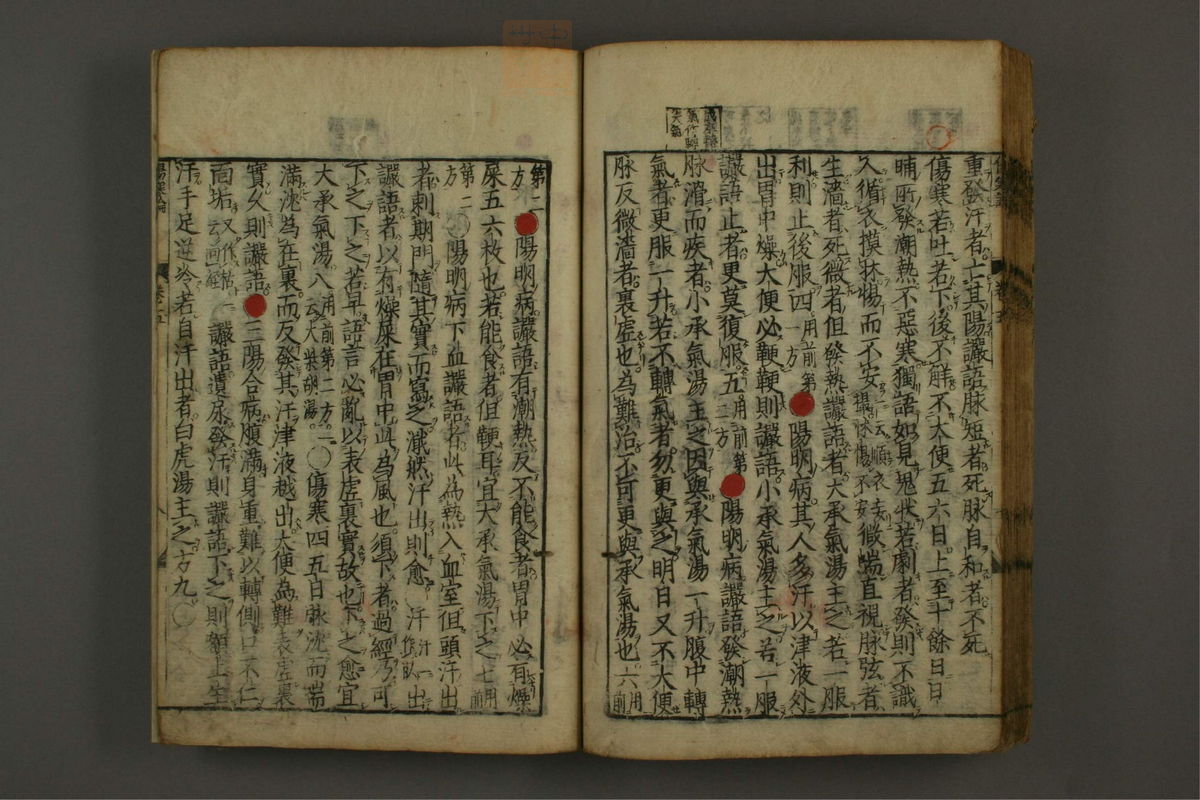 重發汗者亡其陽讝語脉短者死脉自和者不死
傷寒若吐若下後不解不大便五六日上至十餘日日
晡所發潮熱不惡寒獨語如見鬼狀若劇者發則不識
人循衣摸牀惕而不安一云順衣妄撮牀惕不安微喘直視脉弦者
生濇者死微者但發熱讝語者大承氣湯主之若一服
利則止後服四用前第一方陽明病其人多汗以津液外
出胃中燥大便必鞕鞕則讝語小承氣湯主之若一服
讝語止者更莫復服五用前第二方陽明病讝語發潮熱
脉滑而疾者小承氣湯主之因與承氣湯一升腹中轉
氣者更服一升若不轉氣者勿更與之明日又不大便
脉反微濇者裏虛也為難治不可更與承氣湯也六用前
第二方陽明病讝語有潮熱反不能食者胃中必有燥
屎五六枚也若能食者但鞕耳宜大承氣湯下之七用前
第二方陽明病下血讝語者此為熱入血室但頭汗出
者刺期門隨其實而寫之濈然汗出則愈汗汗一作臥出
讝語者以有燥屎在胃中此為風也須下者過經乃可
下之下之若早語言必亂以表虛裏實故也下之愈宜
大承氣湯八用前第二方一云大柴胡湯傷寒四五日脉沈而喘
滿沈為在裏而反發其汗津液越出大便為難表虛裏
實久則讝語三陽合病腹滿身重難以轉側口不仁
面垢讝語遺尿發汗則讝語下之則額上生
汗手足逆冷若自汗出者白虎湯主之方九
傷寒論